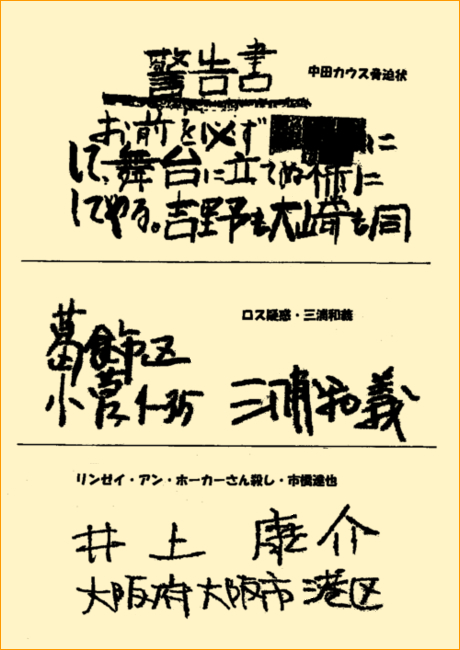 警告書
中田カウス脅迫状
お前を必ず
に
して、舞台に立てぬ様に
してやる。吉野も大崎も同
ロス疑惑・三浦和義
葛飾区
小菅1-35
三浦和義
リンゼイ・アン・ホーカーさん殺し・市橋達也
井上康介
大阪府大阪市港区